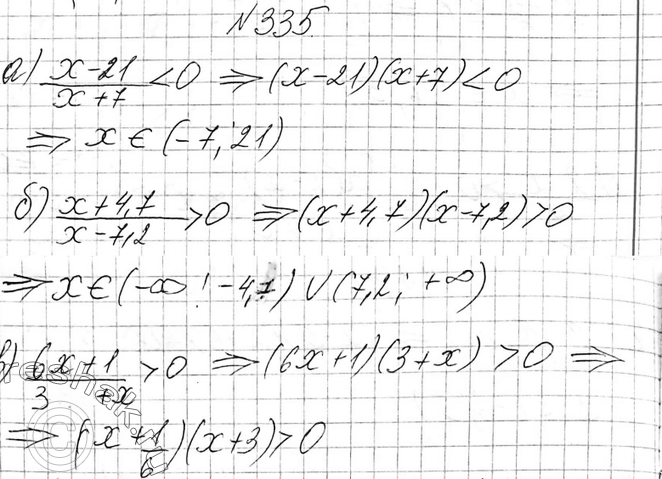 №335.
а) (x-21)/(x+7) < 0 ⇒ (x-21)(x+7) < 0
⇒ x ∈ (-7; 21)
б) (x+4,7)/(x-7,2) > 0 ⇒ (x+4,7)(x-7,2) > 0
⇒ x ∈ (-∞; -4,7) ∪ (7,2; +∞)
в) (6x+1)/(3+x) > 0 ⇒ (6x+1)(3+x) > 0 ⇒
⇒ (x+1/6)(x+3) > 0